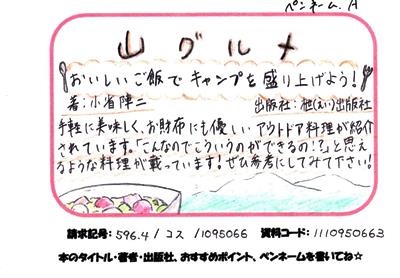 ペンネーム.A
山グルメ
おいしいご飯でキャンプを盛り上げよう!
著:小雀陣二 出版社:枻(えい)出版社
手軽に美味しく、お財布にも優しいアウトドア料理が紹介
されています。「こんなのでこういうのができるの!?」と思え
るような料理が載っています!ぜひ参考にしてみて下さい!
請求記号: 596.4/ コス /1095066 資料コード: 1110950663
本のタイトル・著者・出版社、おすすめポイント、ペンネームを書いてね☆